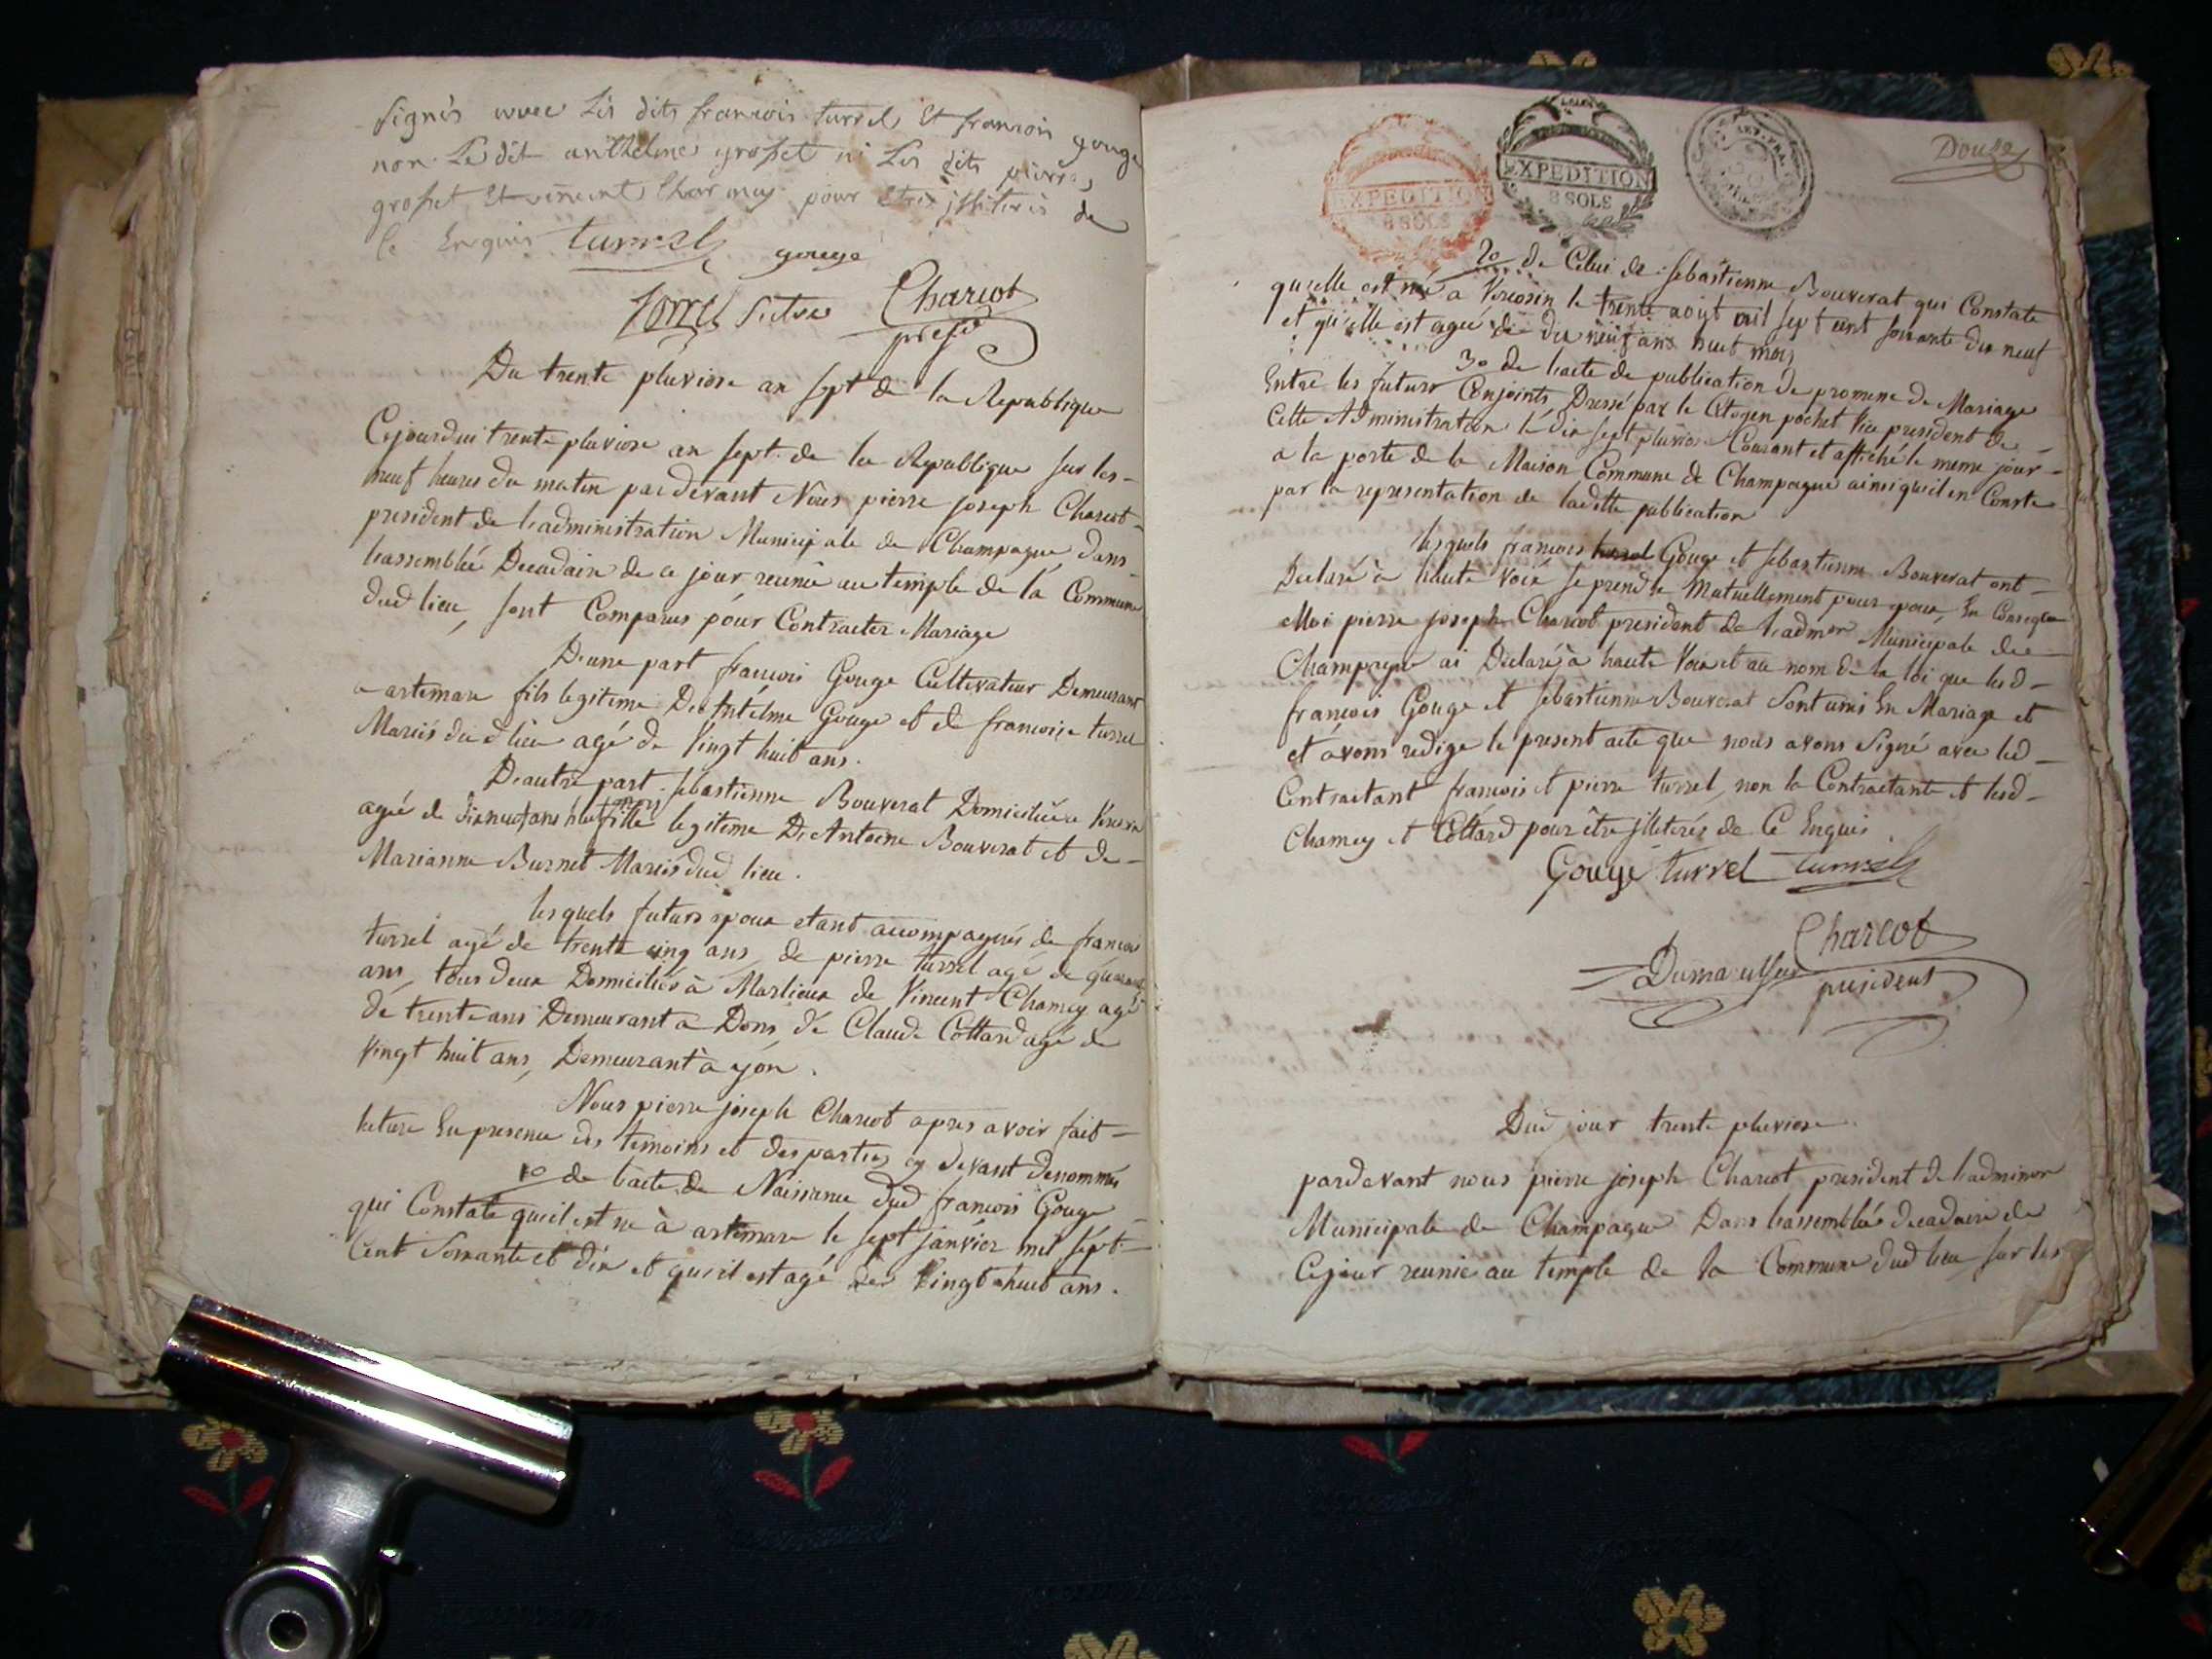 signés avec Les dits francois turrel Et francois gouge
non Ledit anthelme grosset ni Les dits pierre
grosset Et vincent Charmey pour Etre illiterés de
ce Enquis turrel gouge
Torrel Secre Charcot
presid
Du trente pluviose an sept de la Republique
Cejourdui trente pluviose an sept de la Republique sur les
neuf heures du matin pardevant Nous pierre joseph Charcot
president de l'administration Municipale de Champagne, dans
l'assemblée Decadaire de ce jour reunie au temple de la Commune
dud lieu, sont Comparus pour Contracter Mariage
D'une part francois Gouge Cultivateur Demeurant
a artemare fils legitime De Antelme Gouge et de francoise turrel
Mariés dud lieu agé de Vingt huit ans.
D'autre part sebastienne Bouverat Domiciliée a
agée de dixneuf ans huit mois fille legitime De Antoine Bouverat et de
Marianne Burnet Mariés dud lieu.
lesquels futurs epoux etant accompagnés de francois
turrel agé de trente cinq ans, de pierre turrel agé de quarante
ans, tous deux Domiciliés à Marlieux de Vincent Chamey agé
de trente ans Demeurant a Don, de Claude Cottard agé de
Vingt huit ans, Demeurant à yon.
Nous pierre joseph Charcot apres avoir fait
lecture En presence des temoins et des parties cy devant denommés
1o de l'acte de Naissance dud francois Gouge
qui Constate qu'il est né à artemare le sept janvier mil sept
Cent Soixante et dix et qu'il est agé de Vingt huit ans.
EXPEDITION
8 SOLS
EXPEDITION
8 SOLS
Douze
2o de Celui de sebastienne Bouverat qui Constate
qu'elle est né a le trente aout mil sept cent soixante dix neuf
et qu'elle est agée de dix neuf ans huit mois
3o de l'acte de publication de promesse de Mariage
Entre les futurs Conjoints Dressé par le Citoyen pochet Vice president de
Cette Administration le dix sept pluviose Courant et affiché le meme jour
a la porte de la Maison Commune de Champagne ainsi qu'il en Conste
par la representation de laditte publication
lesquels francois turrel Gouge et sebastienne Bouverat ont
Declaré à haute Voix se prendre Mutuellement pour epoux, En Conseqce
Moi pierre joseph Charcot president de l'admon Municipale de
Champagne ai Declaré à haute Voix et au nom de la loi que lesd
francois Gouge et sebastienne Bouverat Sont unis En Mariage et
et avons redigé le present acte que nous avons signé avec led
Contractant francois et pierre turrel, non la Contractante et lesd
Chamey et Cottard pour être illeterés de Ce Enquis
Gouge turrel turrel
Charcot
president
Dud jour trente pluviose
pardevant nous pierre joseph Charcot president de l'adminon
Municipale de Champagne Dans l'assemblée decadaire de
Cejour reunie au temple de la Commune dud lieu sur les